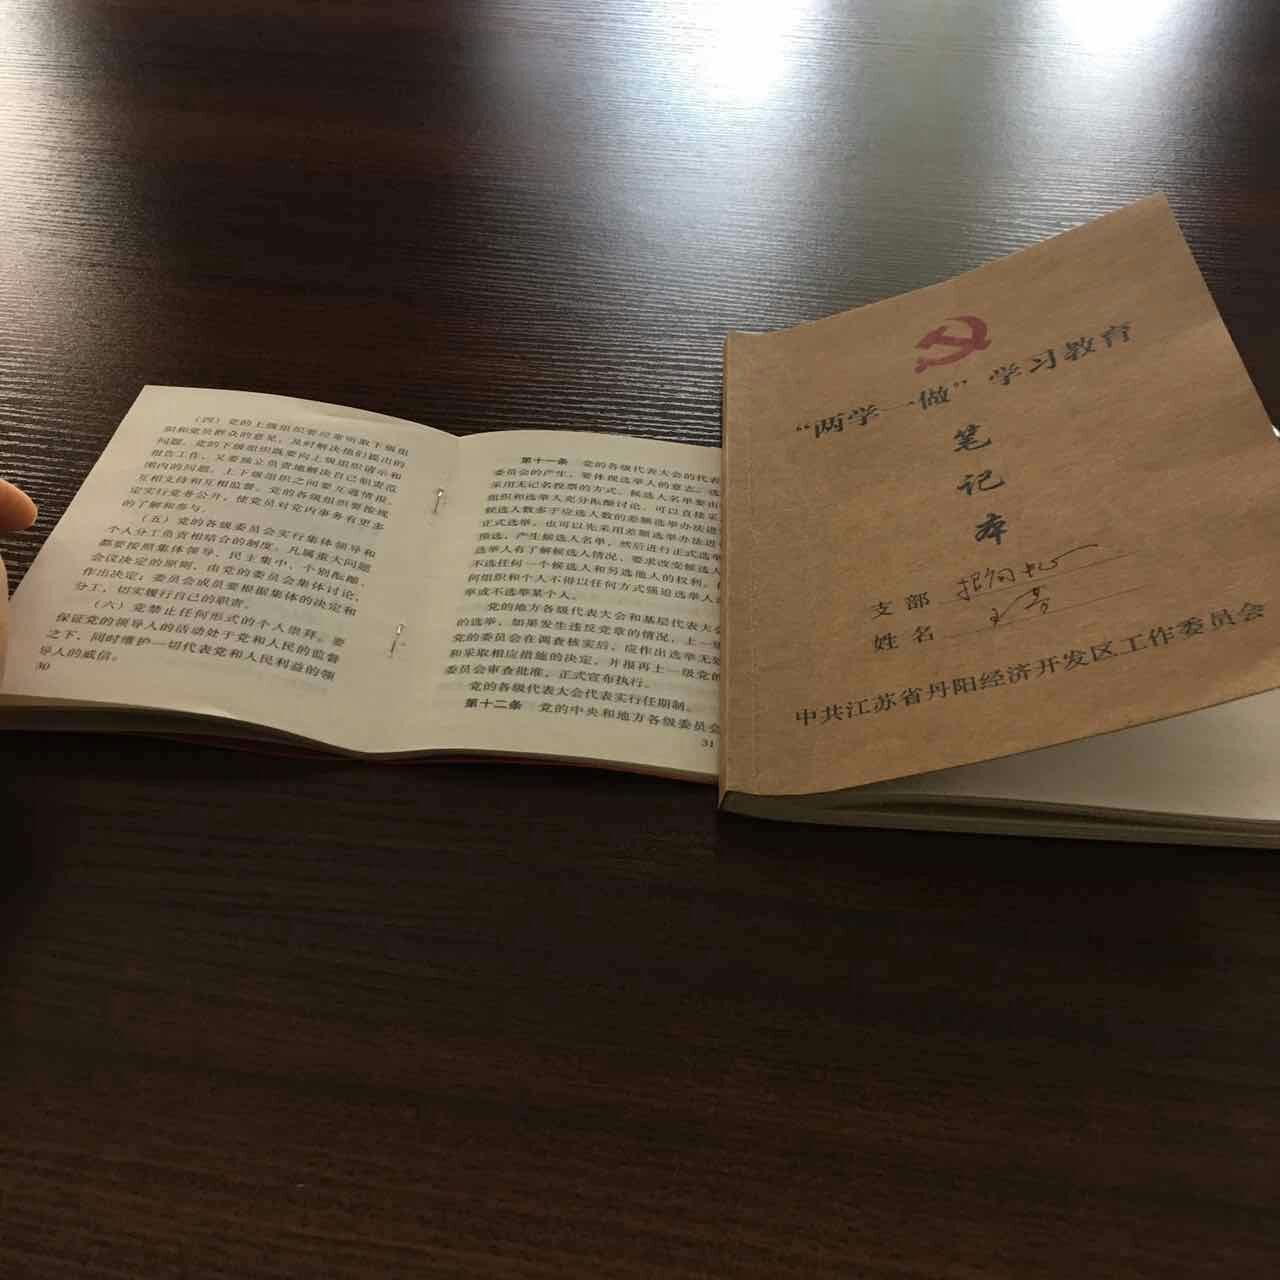 （四）党的上级组织要经常听取下级组
织和党员群众的意见，及时解决他们提出的
问题。党的下级组织既要向上级组织请示和
报告工作，又要独立负责地解决自己职责范
围内的问题。上下级组织之间要互通情报、
互相支持和互相监督。党的各级组织要按规
定实行党务公开，使党员对党内事务有更多
的了解和参与。
（五）党的各级委员会实行集体领导和
个人分工负责相结合的制度。凡属重大问题
都要按照集体领导、民主集中、个别酝酿、
会议决定的原则，由党的委员会集体讨论，
作出决定；委员会成员要根据集体的决定和
分工，切实履行自己的职责。
（六）党禁止任何形式的个人崇拜。要
保证党的领导人的活动处于党和人民的监督
之下，同时维护一切代表党和人民利益的领
导人的威信。
30
第十一条 党的各级代表大会的代表
委员会的产生，要体现选举人的意志。选
采用无记名投票的方式。候选人名单要由
组织和选举人充分酝酿讨论。可以直接采
候选人数多于应选人数的差额选举办法进
正式选举。也可以先采用差额选举办法进
预选，产生候选人名单，然后进行正式选举
选举人有了解候选人情况、要求改变候选人
不选任何一个候选人和另选他人的权利。任
何组织和个人不得以任何方式强迫选举人选
举或不选举某个人。
党的地方各级代表大会和基层代表大会
的选举，如果发生违反党章的情况，上一级
党的委员会在调查核实后，应作出选举无效
和采取相应措施的决定，并报再上一级党的
委员会审查批准，正式宣布执行。
党的各级代表大会代表实行任期制。
第十二条 党的中央和地方各级委员会
31
“两学一做”学习教育
笔
记
本
支部
姓名 王芳
中共江苏省丹阳经济开发区工作委员会